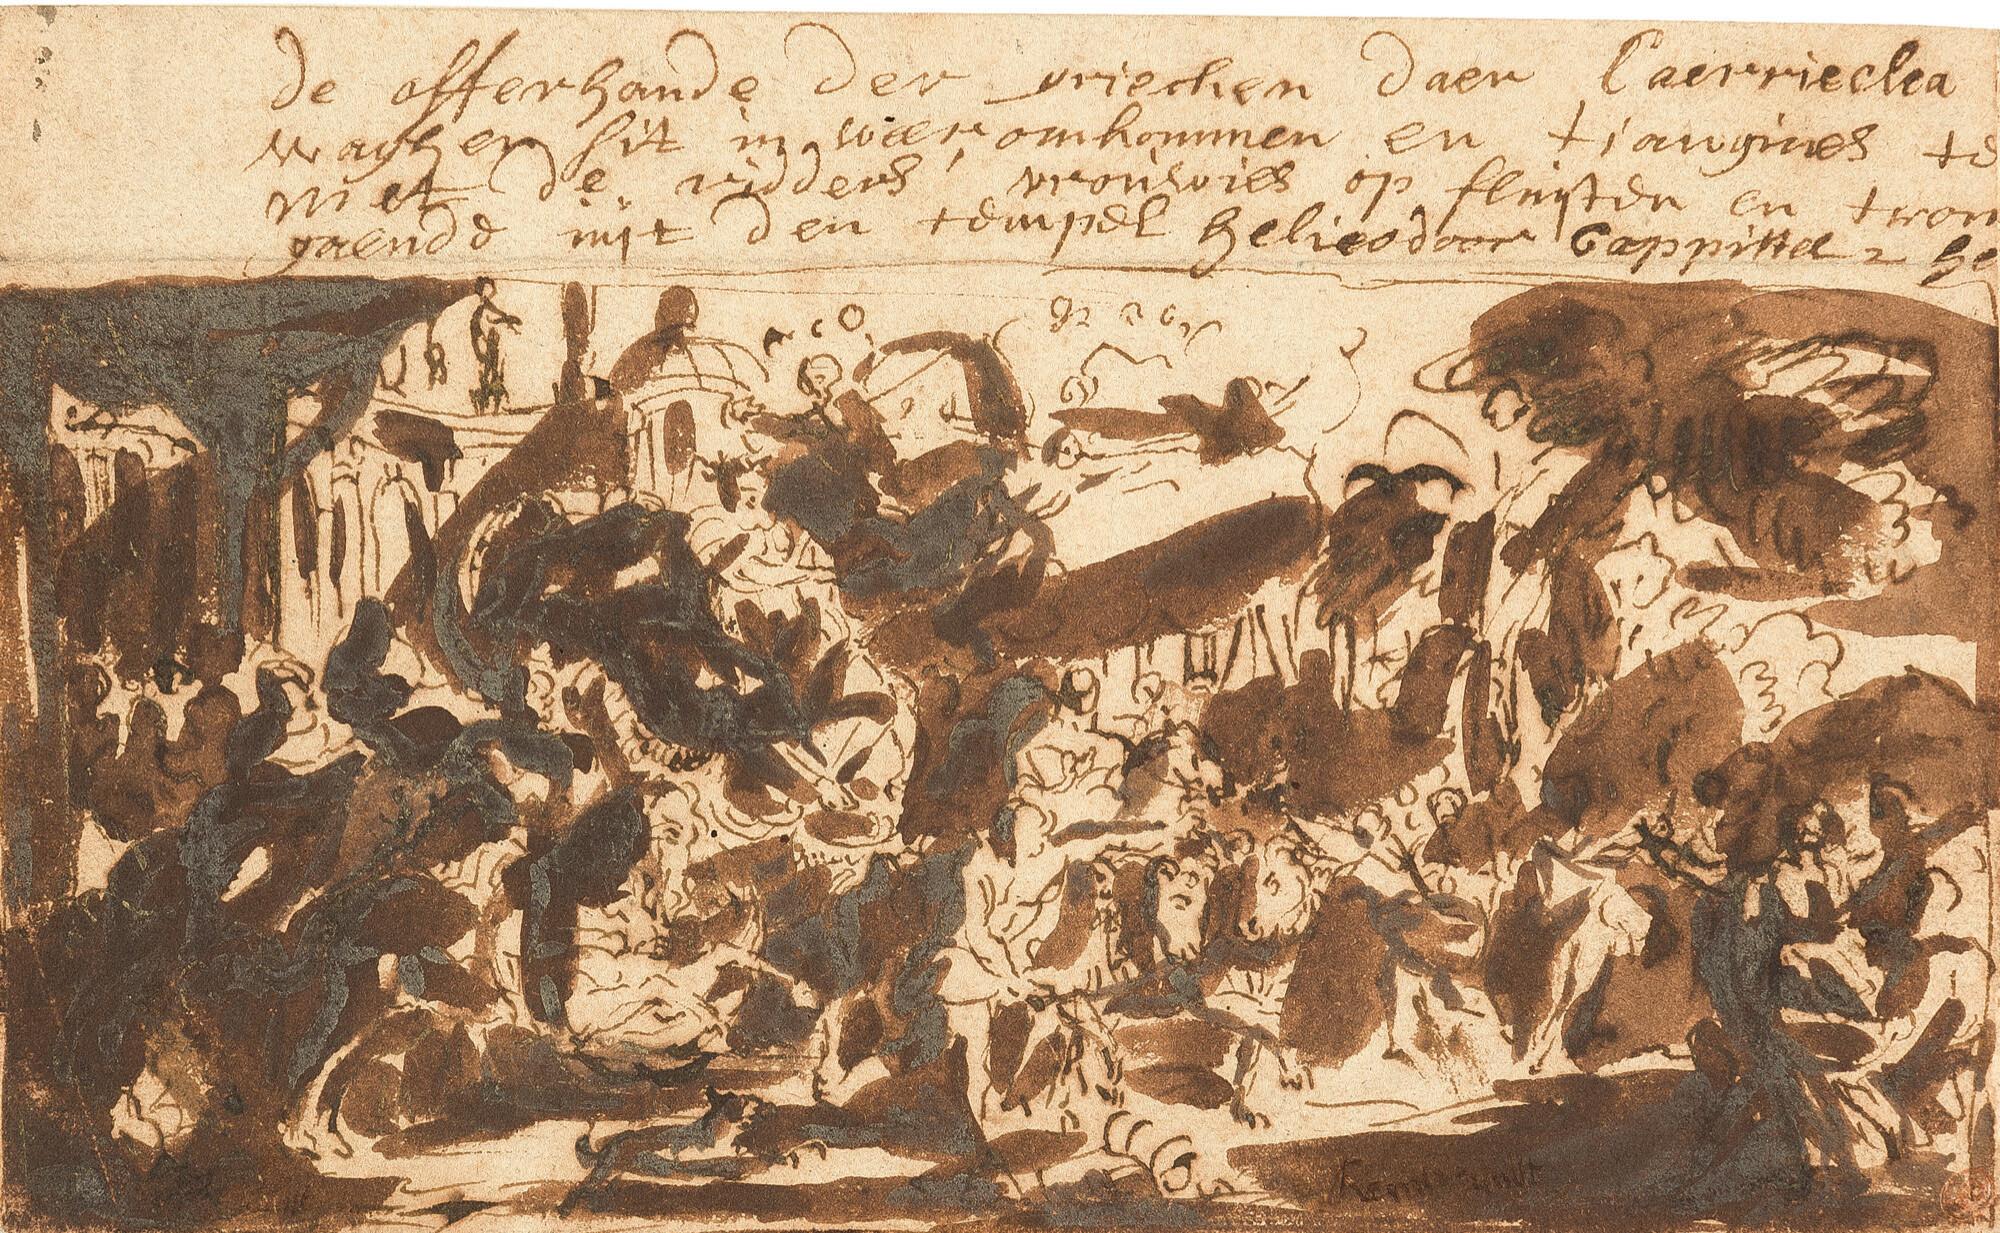 de offerhande der griechen daer Caerrieclea
waghen sit in waeromkommen en tiaugines te
met de ridders vrouwies op fluijten en trom
gaende uijt den tempel heliodoor Cappittel 2 he
Rembrandt